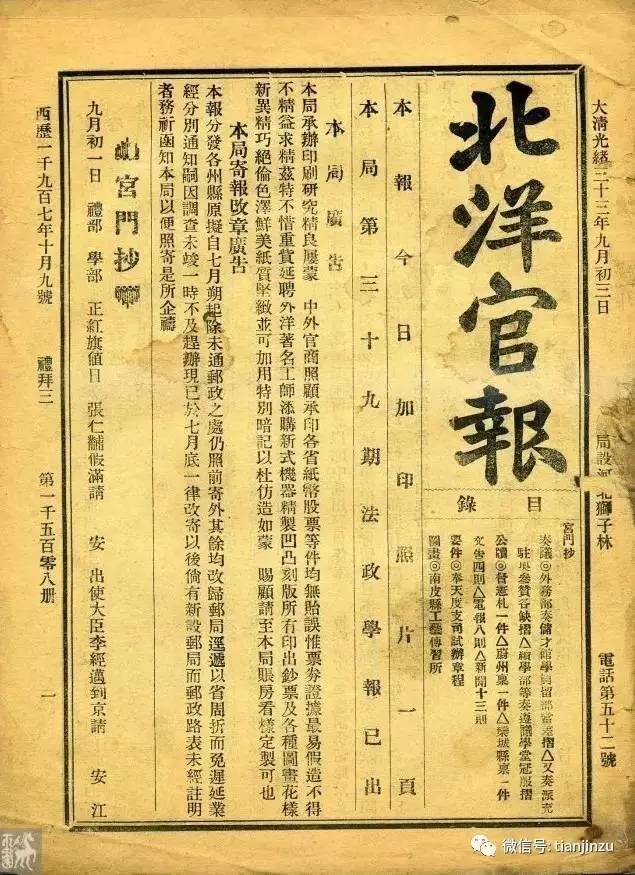 大清光緒三十三年九月初三日
局設河北獅子林
電話第五十二號
北洋官報
目錄
宮門抄
奏議◎外務部奏儲才館學員留部當差摺△又奏派充
駐奧參贊各缺摺△續學部等奏遵議學堂冠服摺
公牘◎督憲札一件△蔚州稟一件△欒城縣稟一件
文告四則△電報八則△新聞十三則
要件◎奉天度支司試辦章程
圖畫◎南皮縣工藝傳習所
本報今日加印照片一頁
本局第三十九期法政學報已出
本局廣告
本局承辦印刷研究精良屢蒙 中外官商照顧承印各省紙幣股票等件均無貽誤惟票券證據最易假造不得
不精益求精茲特不惜重貲延聘外洋著名工師添購新式機器精製凹凸刻版所有印出鈔票及各種圖畫花樣
新異精巧絕倫色澤鮮美紙質堅緻並可加用特別暗記以杜仿造如蒙 賜顧請至本局賬房看樣定製可也
本局寄報改章廣告
本報分發各州縣原擬自七月朔起除未通郵政之處仍照前寄外其餘均改歸郵局遞以省周折而免遲延業
經分別通知嗣因調查未竣一時不及趕辦現已於七月底一律改寄以後倘有新設郵局而郵政路表未經註明
者務祈函知本局以便照寄是所企禱
宮門抄
九月初一日 禮部 學部 正紅旗值日 張仁黼假滿請 安 出使大臣李經邁到京請 安 江
西歷一千九百七年十月九號 禮拜三 第一千五百零八册 一
微信号: tianjinzu